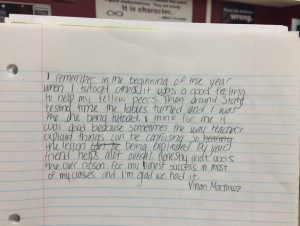 it is character.
wrong.
I remember in the beginning of the year
when I tutored it was a good feeling
to help my fellow peers. Then around State
testing time the tables turned and I was
the one being tutored & mine for me it
was good because sometimes the way teachers
explain things can be confusing so
the lesson being explained by your
friend helps alot overall. Honestly that was
the over reason for my honest success in most
of my classes and I'm glad we had it.
Vivian Martinez